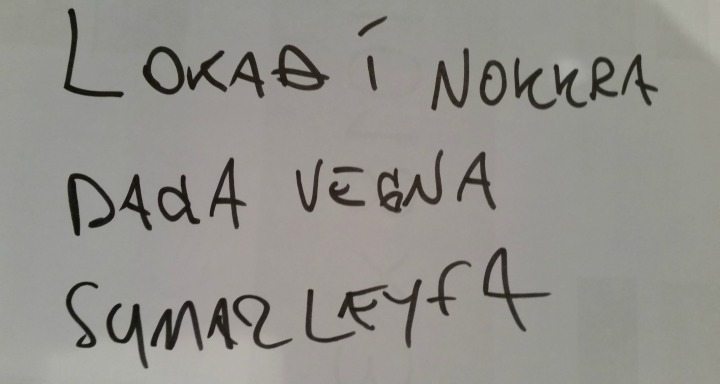 LOKAÐ Í NOKKRA
DAGA VEGNA
SUMARLEYFA